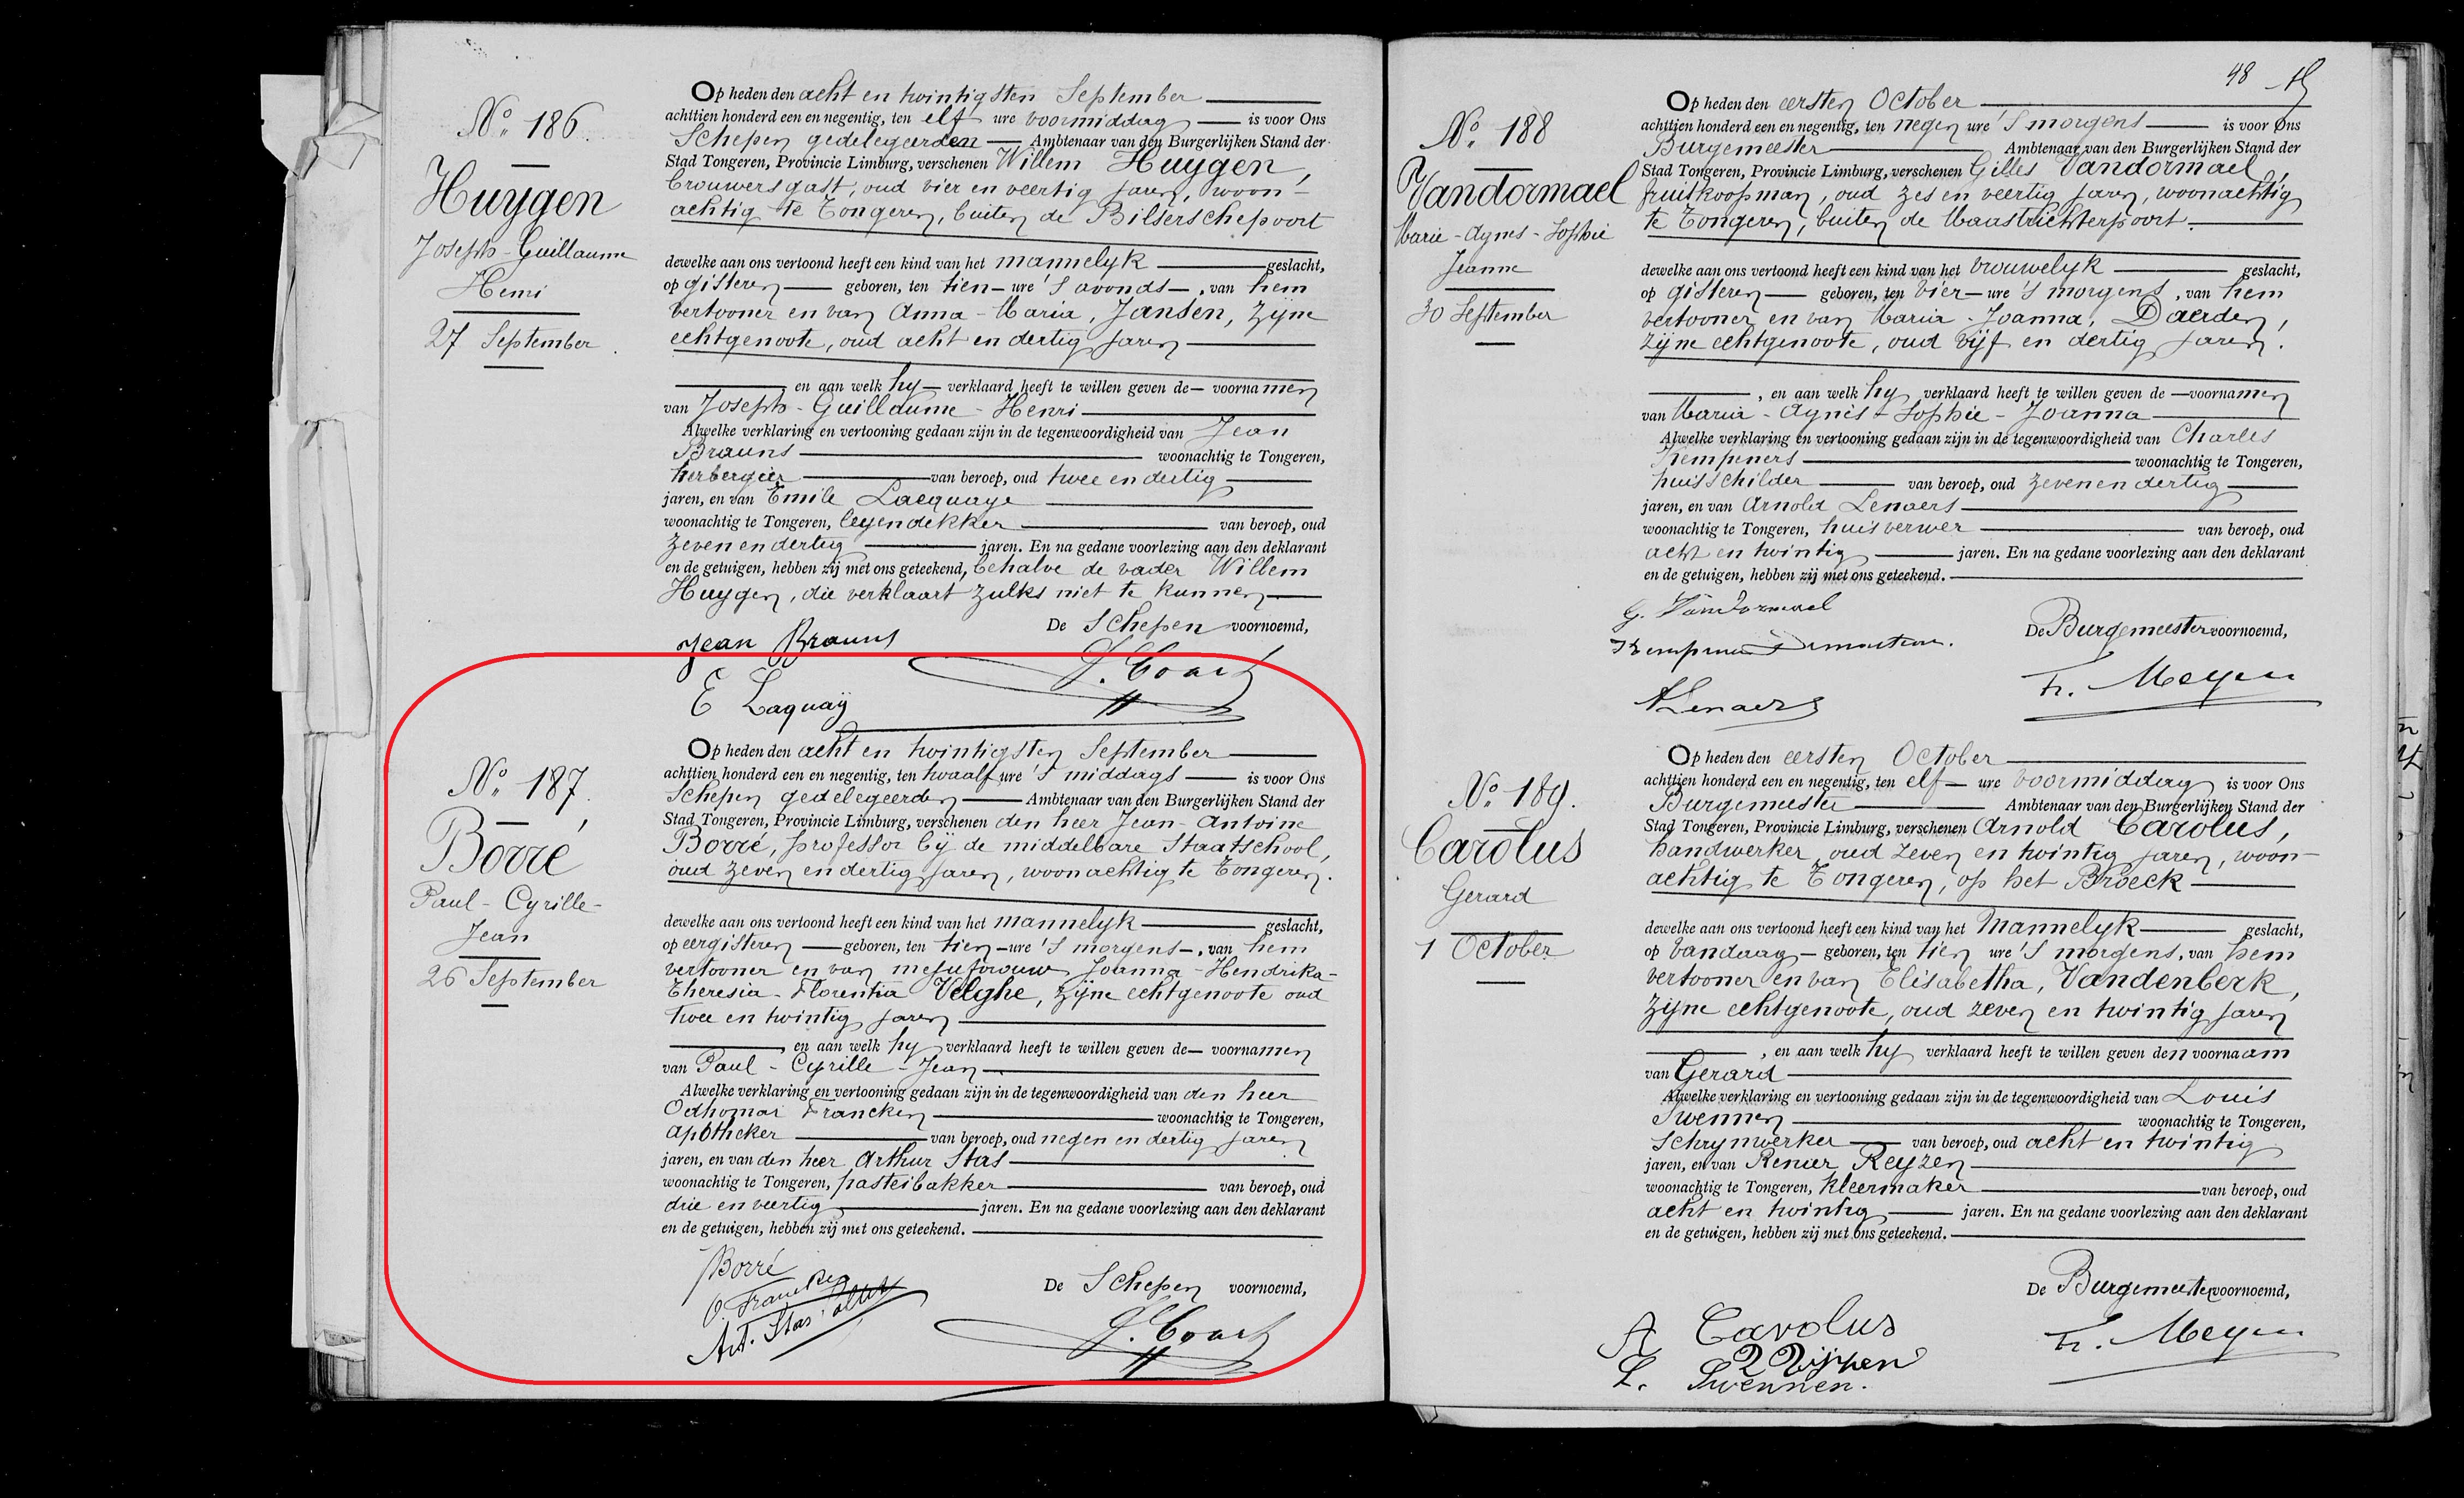 Nº 186.
Huygen
Joseph-Guillaume
Henri
27 September
Op heden den acht en twintigsten September
achttien honderd een en negentig, ten elf ure voormiddag is voor Ons
Schepen gedelegeerden Ambtenaar van den Burgerlijken Stand der
Stad Tongeren, Provincie Limburg, verschenen Willem Huygen,
brouwersgast, oud vier en veertig jaren, woon-
achtig te Tongeren, buiten de Bilserschepoort
dewelke aan ons vertoond heeft een kind van het mannelyk geslacht,
op gisteren geboren, ten tien ure 's avonds, van hem
vertooner en van Anna-Maria, Jansen, zijne
echtgenoote, oud acht en dertig jaren
, en aan welk hy verklaard heeft te willen geven de voornamen
van Joseph-Guillaume-Henri
Alwelke verklaring en vertooning gedaan zijn in de tegenwoordigheid van Jean
Brauns woonachtig te Tongeren,
herbergier van beroep, oud twee en dertig
jaren, en van Emile Lacquaye
woonachtig te Tongeren, leyendekker van beroep, oud
zeven en dertig jaren. En na gedane voorlezing aan den deklarant
en de getuigen, hebben zij met ons geteekend, behalve de vader Willem
Huygen, die verklaart zulks niet te kunnen
De Schepen voornoemd,
Jean Brauns
E Laquay
Nº 187.
Borré
Paul-Cyrille-
Jean
26 September
Op heden den acht en twintigsten September
achttien honderd een en negentig, ten twaalf ure 's middags is voor Ons
Schepen gedelegeerden Ambtenaar van den Burgerlijken Stand der
Stad Tongeren, Provincie Limburg, verschenen den heer Jean-Antoine
Borré, professor bij de middelbare Staatschool,
oud zeven en dertig jaren, woonachtig te Tongeren.
dewelke aan ons vertoond heeft een kind van het mannelyk geslacht,
op eergisteren geboren, ten tien ure 's morgens, van hem
vertooner en van mejufvrouw Joanna-Hendrika-
Theresia-Florentia Velghe, zijne echtgenoote oud
twee en twintig jaren
, en aan welk hy verklaard heeft te willen geven de voornamen
van Paul-Cyrille-Jean
Alwelke verklaring en vertooning gedaan zijn in de tegenwoordigheid van den heer
Odhomar Francken woonachtig te Tongeren,
apotheker van beroep, oud negen en dertig jaren
jaren, en van den heer Arthur Stas
woonachtig te Tongeren, pasteibakker van beroep, oud
drie en veertig jaren. En na gedane voorlezing aan den deklarant
en de getuigen, hebben zij met ons geteekend.
Borré
O. Francken
Art. Stas
De Schepen voornoemd,
48
Nº 188
Vandormael
Marie-Agnes-Sophie
Jeanne
30 September
Op heden den eersten October
achttien honderd een en negentig, ten negen ure 's morgens is voor Ons
Burgemeester Ambtenaar van den Burgerlijken Stand der
Stad Tongeren, Provincie Limburg, verschenen Gilles Vandormael,
fruitkoopman, oud zes en veertig jaren, woonachtig
te Tongeren, buiten de Maastrichterpoort.
dewelke aan ons vertoond heeft een kind van het vrouwelyk geslacht,
op gisteren geboren, ten vier ure 's morgens, van hem
vertooner en van Maria-Joanna, Daerden,
zijne echtgenoote, oud vijf en dertig jaren.
, en aan welk hy verklaard heeft te willen geven de voornamen
van Maria-Agnès-Sophie-Joanna
Alwelke verklaring en vertooning gedaan zijn in de tegenwoordigheid van Charles
Kempeners woonachtig te Tongeren,
huisschilder van beroep, oud zeven en dertig
jaren, en van Arnold Lenaers
woonachtig te Tongeren, huisverwer van beroep, oud
acht en twintig jaren. En na gedane voorlezing aan den deklarant
en de getuigen, hebben zij met ons geteekend.
G. Vandormael
De Burgemeester voornoemd,
A Lenaers
Fr. Meyers
Nº 189.
Carolus
Gerard
1 October
Op heden den eersten October
achttien honderd een en negentig, ten elf ure voormiddag is voor Ons
Burgemeester Ambtenaar van den Burgerlijken Stand der
Stad Tongeren, Provincie Limburg, verschenen Arnold Carolus,
handwerker, oud zeven en twintig jaren, woon-
achtig te Tongeren, op het Broeck
dewelke aan ons vertoond heeft een kind van het Mannelyk geslacht,
op vandaag geboren, ten tien ure 's morgens, van hem
vertooner en van Elisabetha, Vandenberk,
zijne echtgenoote, oud zeven en twintig jaren
, en aan welk hy verklaard heeft te willen geven den voornaam
van Gerard
Alwelke verklaring en vertooning gedaan zijn in de tegenwoordigheid van Louis
Swennen woonachtig te Tongeren,
Schrynwerker van beroep, oud acht en twintig
jaren, en van Renier Reyzen
woonachtig te Tongeren, kleermaker van beroep, oud
acht en twintig jaren. En na gedane voorlezing aan den deklarant
en de getuigen, hebben zij met ons geteekend.
De Burgemeester voornoemd,
A Carolus
L. Swennen.
Fr. Meyers